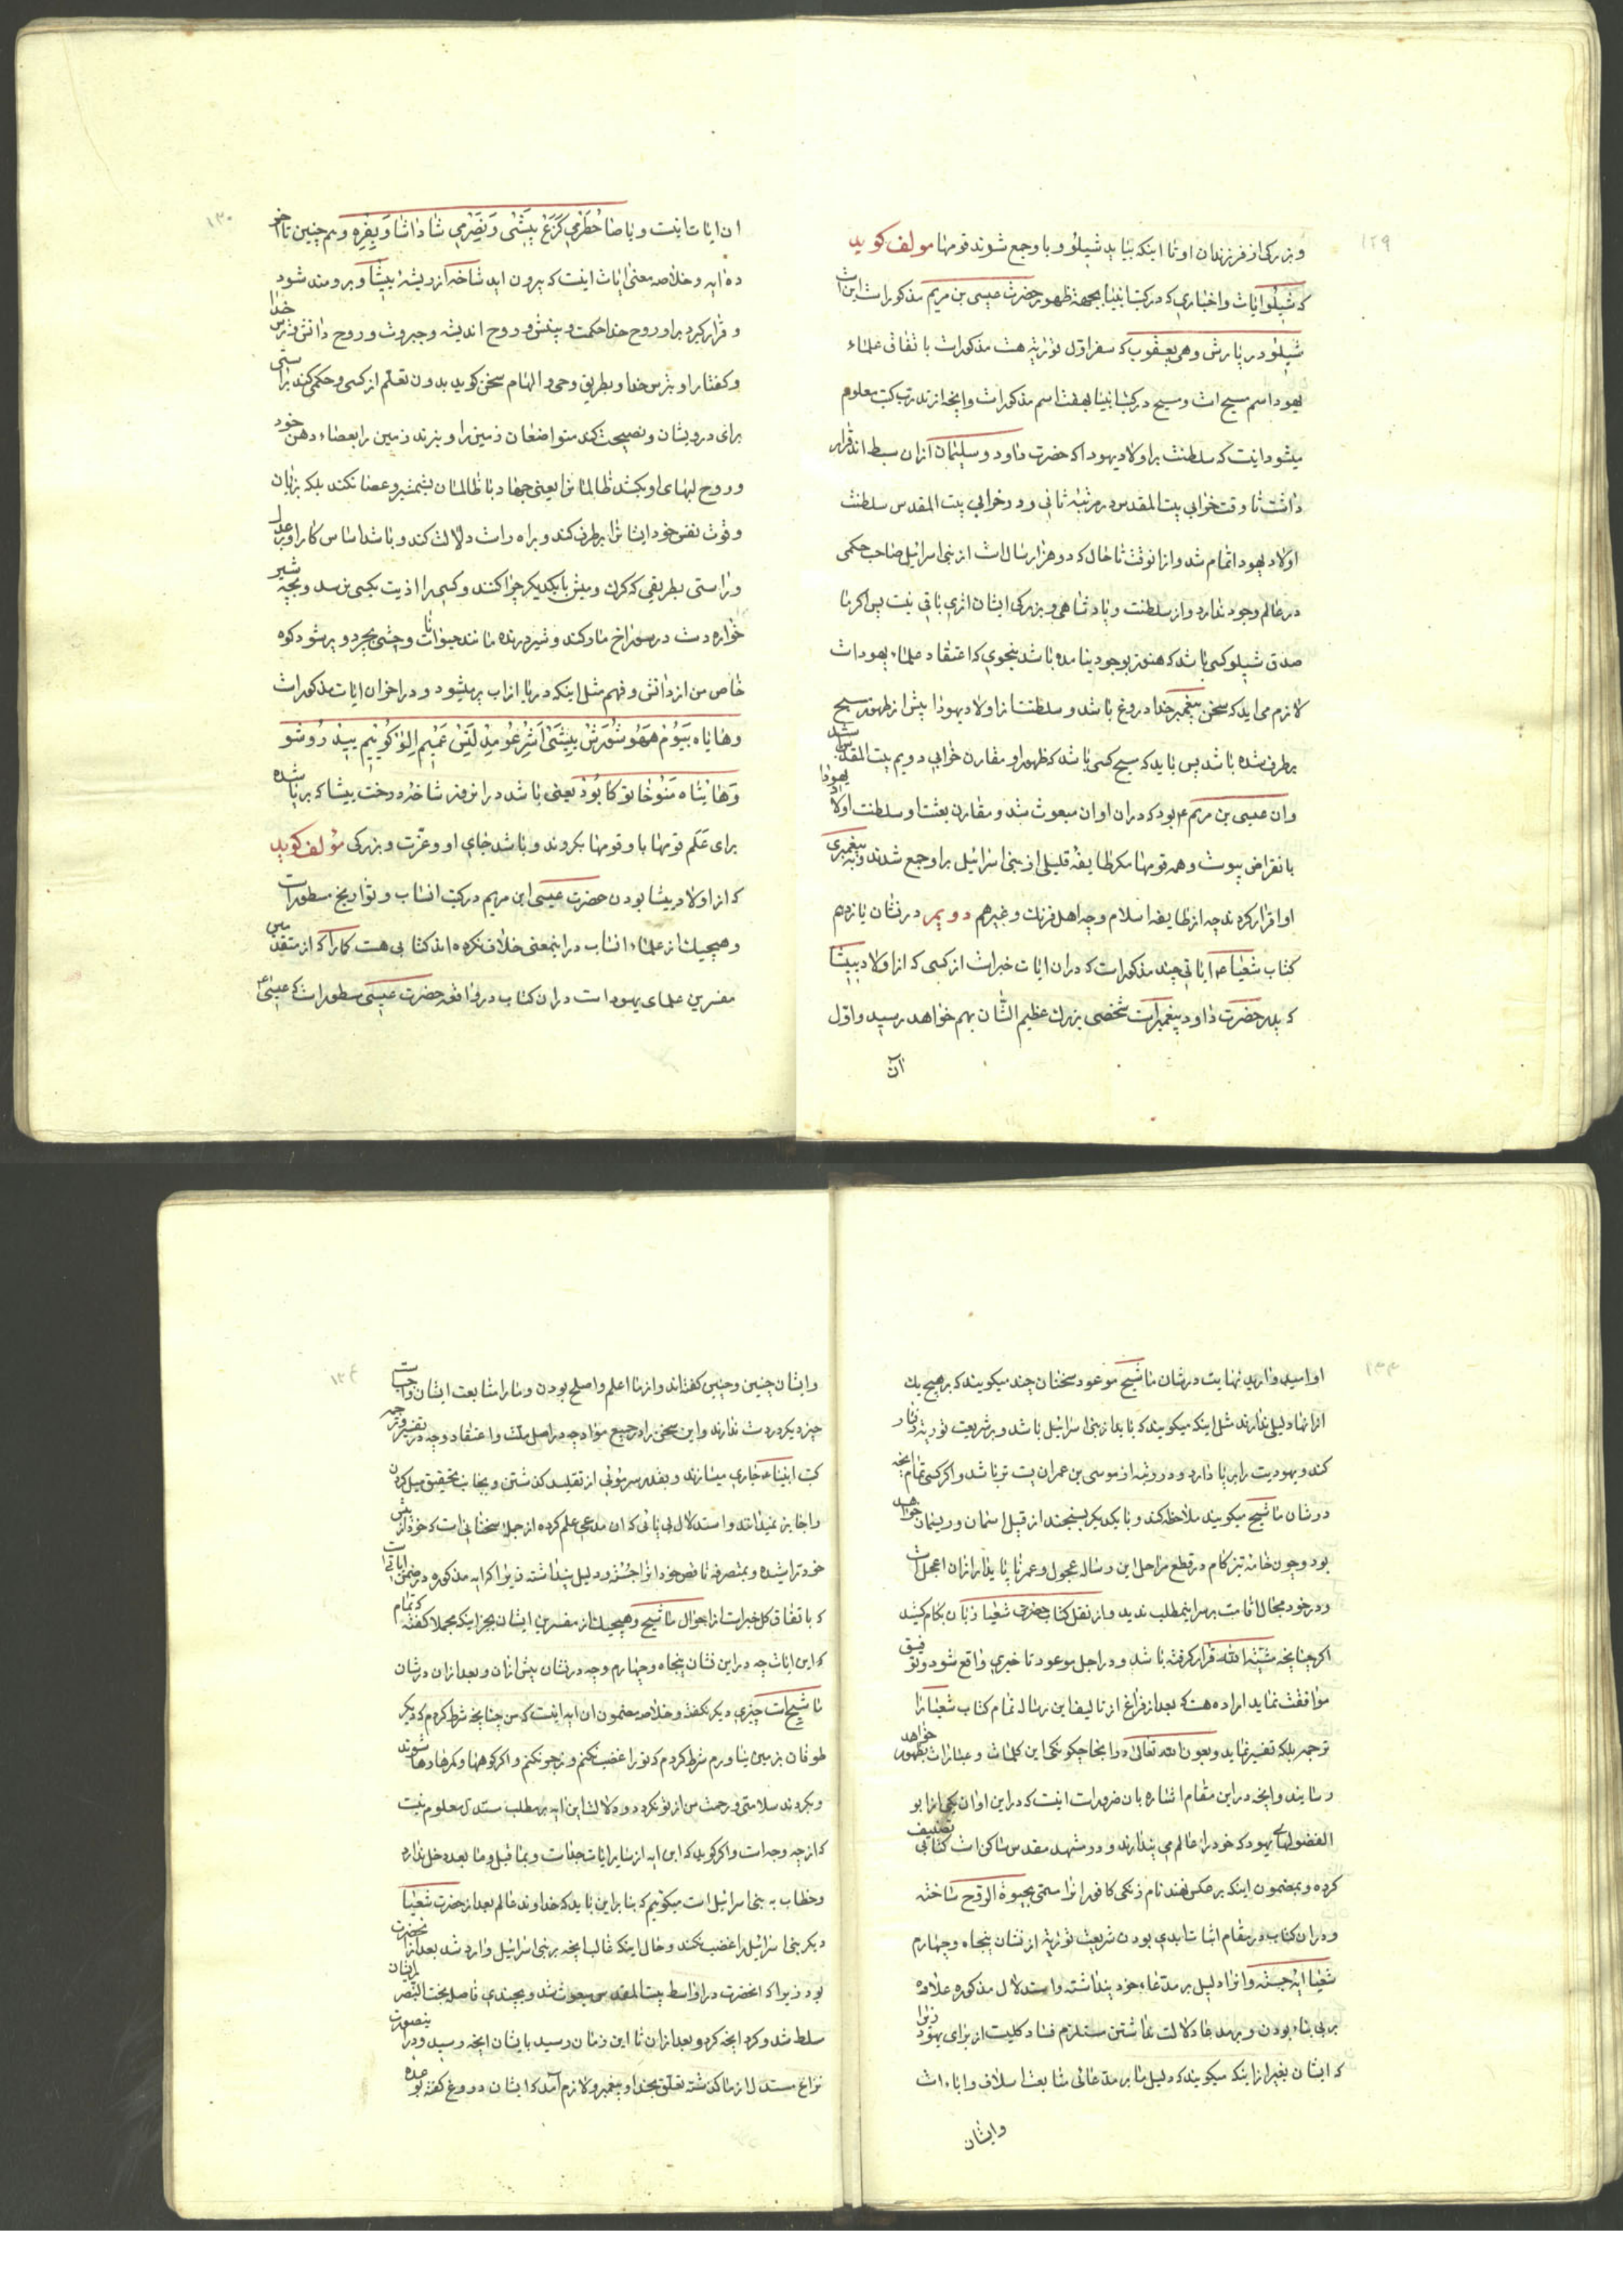 ۱۲۹
و بزرکی از فرزندان او تا اینکه بیاید شیلو و باو جمع شوند قومها مولف کوید
که شیلو ایات و اخباری که در کتب انبیا بجهة ظهور حضرت عیسی بن مریم مذکور است این است
شیلو در پارش ویحی یعقوب که سفر اول توریة هست مذکور است باتفاق علماء
یهود اسم مسیح است و مسیح در کتب انبیا بهفت اسم مذکور است و انچه از تدرب کتب معلوم
میشود اینست که سلطنت بر اولاد یهودا که حضرت داود و سلیمان از ان سبط اند قرار
داشت تا وقت خرابی بیت المقدس در مرتبه ثانی و در خرابی بیت المقدس سلطنت
اولاد یهودا تمام شد و از انوقت تا حال که دو هزار سال است از بنی اسرائیل صاحب حکمی
در عالم وجود ندارد و از سلطنت و پادشاهی و بزرکی ایشان اثری باقی نیست پس اکر ما
صدق شیلو کسی باشد که هنوز بوجود نیامده باشد بنحوی که اعتقاد علماء یهود است
لازم می اید که سخن پیغمبر خدا دروغ باشد و سلطنت از اولاد یهودا پیش از ظهور مسیح
برطرف شده باشد پس باید که مسیح کسی باشد که ظهور او مقارن خرابی دویم بیت المقدس باشد
وان عیسی بن مریم ع بود که در ان اوان مبعوث شد و مقارن بعثت او سلطنت اولاد یهودا
بانقراض پیوست و همه قومها مکر طایفه قلیلی از بنی اسرائیل براو جمع شدند و به پیغمبری
او اقرار کردند چه از طایفه اسلام و چه اهل فرنك و غیرهم دویم در نشان یازدهم
کتاب شعیاء ایاتی چند مذکور است که دران ایات خبر است از کسی که از اولاد ییشا
که پدر حضرت داود پیغمبر است شخصی بزرك عظیم الشان بهم خواهد رسید و اول
آن
۱۳۰
ان ایات اینست ویاصا حطر می کزع ییشی ونصر می شاداشا ویفره و هم چنین تا اخر
ده ایه و خلاصه معنی ایات اینست که بیرون اید شاخه از ریشه ییشا و برومند شود
و قرار کیرد براو روح خدا حکمت و بینش و روح اندیشه و جبروت و روح دانش و ترس خدا
و کفتار او بترس خدا و بطریق وحی و الهام سخن کوید بدون تعلم از کسی و حکم کند براستی
برای درویشان و نصیحت کند متواضعان زمین را و بزند زمین را بعصاء دهن خود
و روح لبهای او بکشد ظالمانرا یعنی جهاد با ظالمان بشمشیر و عصا نکند بلکه بزبان
و قوت نفس خود ایشانرا برطرف کند و براه راست دلالت کند و باشد اساس کار او بر عدل
و راستی بطریقی که کرك و میش با یکدیکر چرا کنند و کسی را اذیت بکسی نرسد و بچه شیر
خواره دست در سوراخ مار کند و شیر درنده مانند حیوانات وحشی بچرد و پر شود کوه
خاص من از دانش و فهم مثل اینکه دریا از اب پر میشود و در اخر ان ایات مذکور است
وهایاه بیوم ههو شورش ییشی اشر عومد لنس عمیم الو کوییم ییدروشو
وهایثاه منوخاثو کابود یعنی باشد در انروز شاخه درخت ییشا که برپا شده
برای علم قومها باو قومها بکروند و باشد جای او و عزت و بزرکی مؤلف کوید
که از اولاد ییشا بودن حضرت عیسی ابن مریم در کتب انساب و تواریخ مسطور است
و هیچیك از علماء انساب در اینمعنی خلاف نکرده اند کتابی هست کمارا که از متقدمین
مفسرین علمای یهود است در ان کتاب در واقعه حضرت عیسی مسطور است که عیسی ع
۱۳۳
او امید دارید نهایت در شان ماشیح موعود سخنان چند میکویند که بر هیچ یك
از انها دلیلی ندارند مثل اینکه میکویند که باید از بنی اسرائیل باشد و بر شریعت توریة رفتار
کند و یهودیت را برپا دارد و در رتبه از موسی بن عمران پست تر باشد و اکر کسی تمام انچه
در شان ماشیح میکویند ملاحظه کند و با یکدیکر بسنجد از قبیل اسمان و ریسمان خواهد
بود و چون خامه تیز کام در قطع مراحل این رساله عجول و عمر ناپایدار از ان اعجل است
و در خود مجال اقامت بر سر اینمطلب ندید و از نقل کتاب حضرت شعیا زبان بکام کشید
اکر چنانچه مشیة الله قرار کرفته باشد و در اجل موعود تاخیری واقع شود و توفیق
موافقت نماید اراده هست که بعد از فراغ از تالیف این رساله تمام کتاب شعیا را
ترجمه بلکه تفسیر نماید و بعون الله تعالی در انجا چکونکی این کلمات و عبارات بظهور خواهد
رسانید و انچه در این مقام اشاره بان ضرور است اینست که در این اوان یکی از ابو
الفضولهای یهود که خود را عالم می پندارند و در مشهد مقدس ساکن است کتابی تصنیف
کرده و بمضمون اینکه برعکس نهند نام زنکی کافور انرا مسمی بحیوة الروح ساخته
و دران کتاب در مقام اثبات ابدی بودن شریعت توریة از نشان پنجاه و چهارم
شعیا ایه جسته و انرا دلیل بر مدعاء خود پنداشته و استدلال مذکوره علاوه
بر بی بناء بودن و بر مدعا دلالت نداشتن مستلزم فساد کلیست از برای یهود زیرا
که ایشان بغیر از اینکه میکویند که دلیل ما بر مدعای ما متابعت اسلاف و اباء است
وایشان
۱۳۴
وایشان چنین و چنین کفته اند و از ما اعلم و اصلح بودن و مارا متابعت ایشان واجبست
چیز دیکر در دست ندارند و این سخن را در جمیع مواد چه در اصل ملت و اعتقاد و چه در تفسیر و ترجمه
کتب انبیاء جاری میسازند و بقدر سر موئی از تقلید کذشتن و بجانب تحقیق میل کردن
را جایز نمیدانند و استدلال بی پائی که ان مدعی علم کرده از جمله سخنانی است که خود از پیش
خود تراشیده و بمتصرفه ناقص خود انرا جسته و دلیل پنداشته زیرا که ایه مذکوره در ضمن ایاتی است
که باتفاق کل خبر است از احوال ماشیح و هیچیك از مفسرین ایشان بجز اینکه مجملا کفته که تمام
که این ایات چه در این نشان پنجاه و چهارم و چه در نشان پیش از ان و بعد از ان در شان
ماشیح است چیزی دیکر نکفته و خلاصه مضمون ان ایه اینست که من چنانچه شرط کردم که دیکر
طوفان بزمین نیاورم شرط کردم که تورا غضب نکنم و زجر نکنم و اکر کوهها و کمرها دها شوند
و بکردند سلامتی و رحمت من از تو نکردد و دلالت این ایه بر مطلب مستدل معلوم نیست
که از چه وجه است و اکر کوید که این ایه از سایر ایات جداست و بماقبل و مابعد دخل ندارد
و خطاب به بنی اسرائیل است میکوئیم که بنابراین باید که خداوند عالم بعد از حضرت شعیا
دیکر بنی اسرائیل را غضب نکند و حال اینکه غالب انچه بر بنی اسرائیل وارد شد بعد از انحضرت
بود زیرا که انحضرت در اواسط بیت المقدس مبعوث شد و بچندی فاصله بخت النصر بر ایشان
مسلط شد و کرد انچه کرد و بعد از ان تا این زمان رسید بایشان انچه رسید و در اینصورت
نزاع مستدل از ما کذشته تعلق بخدا و پیغمبر و لازم آمد که ایشان دروغ کفته و وعده